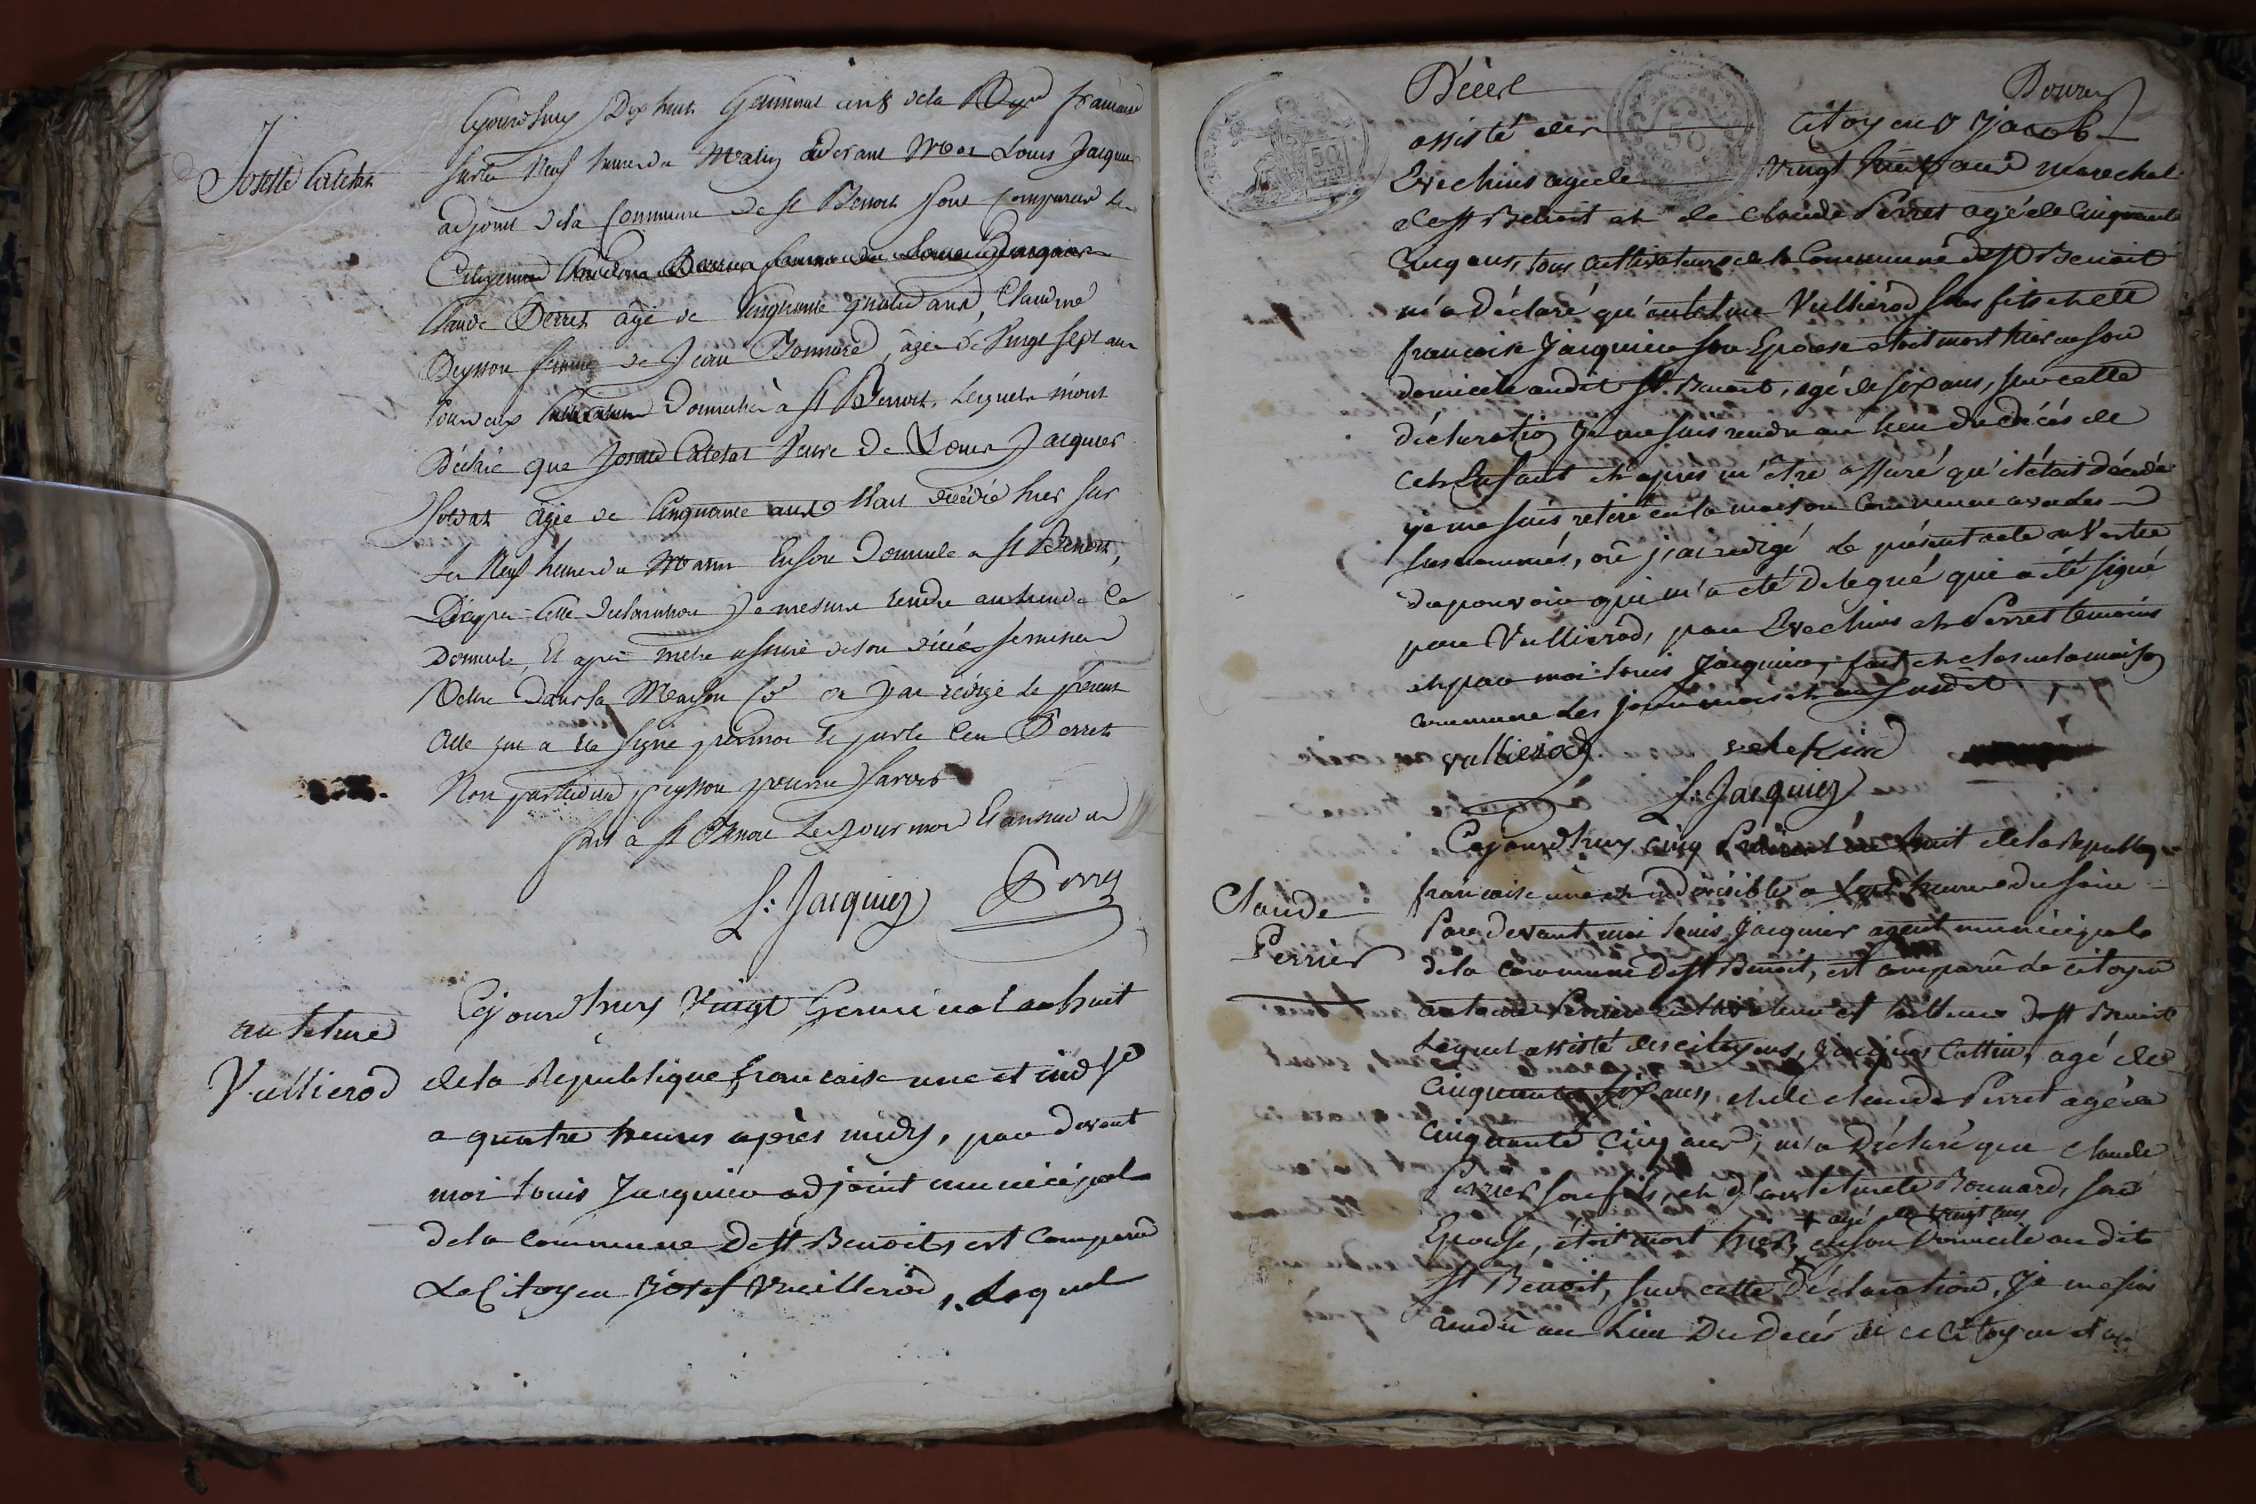 Josette Catelat
Cejourdhuy Dix huit Germinal an 8 de la Rque francaise
sur les Neuf heures du Matin devant Moi Louis Jacquier
adjoint de la Commune de St Benoit sont comparus les
Citoyens
Claude Perret agé de Cinquante quatre ans, Claudine
Peysson femme de Jean Bonnard, agée de Vingt sept ans
tous deux Domiciliés à St Benoit, lesquels m'ont
Déclaré que Josette Catelat Veuve de Louis Jacquier
Soldat agée de Cinquante ans étoit décédée hier sur
les Neuf heures du Matin En son Domicile a St Benoit,
D'après cette declaration Je me suis rendu au lieu de ce
Domicile, Et après m'etre assuré de son décès je me suis
Retiré dans la Maison Cne ou j'ai rédigé le présent
acte qui a été signé par moi et par le Cen Perret
Non par ladite peysson pour ne savoir
fait a St Benoit les jour mois Et an susdits
L: Jacquier Perret
antelme
Vullierod
Cejourdhuy Vingt Germinal an huit
de la République francaise une et indle
a quatre heures après midy, par devant
moi Louis Jacquier adjoint municipal
de la Commune de St Benoit, est comparu
Le Citoyen Josef Vuillerod, Lequel
Décès
Douze
assisté des Citoyens Jacob
Evechins agé de Vingt huit ans marechal
de St Benoit et de Claude Perret agé de Cinquante
Cinq ans, tous cultivateurs de la Commune de St Benoit
m'a déclaré qu'antelme Vullierod son fils et de
francoise Jacquier son Epouse etoit mort hier en son
domicile audit St. Benoit, agé de six ans, sur cette
déclaration Je me suis rendu au lieu du décès de
cet Enfant et après m'être assuré qu'il étoit décédé
je me suis retiré en la maison Commune avec les
susnommés, où j'ai redigé le présent acte en Vertu
du pouvoir qui m'a été délegué qui a été signé
par Vullierod, par Evechins et Perret temoins
et par moi Louis Jacquier, fait et clos en la maison
commune les jour mois et an susdits
vullierod
L: Jacquier
Claude
Perrier
Cejourdhuy cinq an huit de la Republique
francaise une et indivisible a heures du soir
Par devant moi Louis Jacquier agent municipal
de la Commune de St Benoit, est comparu le citoyen
antoine Perrier Cultivateur et tailleur de St Benoit
Lequel assisté des citoyens, Jacques Cattin, agé de
cinquante six ans, et de Claude Perret agé de
cinquante cinq ans, m'a Déclaré que Claude
Perrier son fils, et d'antelmete Bonnard, son
+ agé de vingt ans
Epouse, étoit mort hier, en son Domicile au dit
St Benoit, sur cette Déclaration, Je me suis
rendu au Lieu Du Décès de ce Citoyen et a